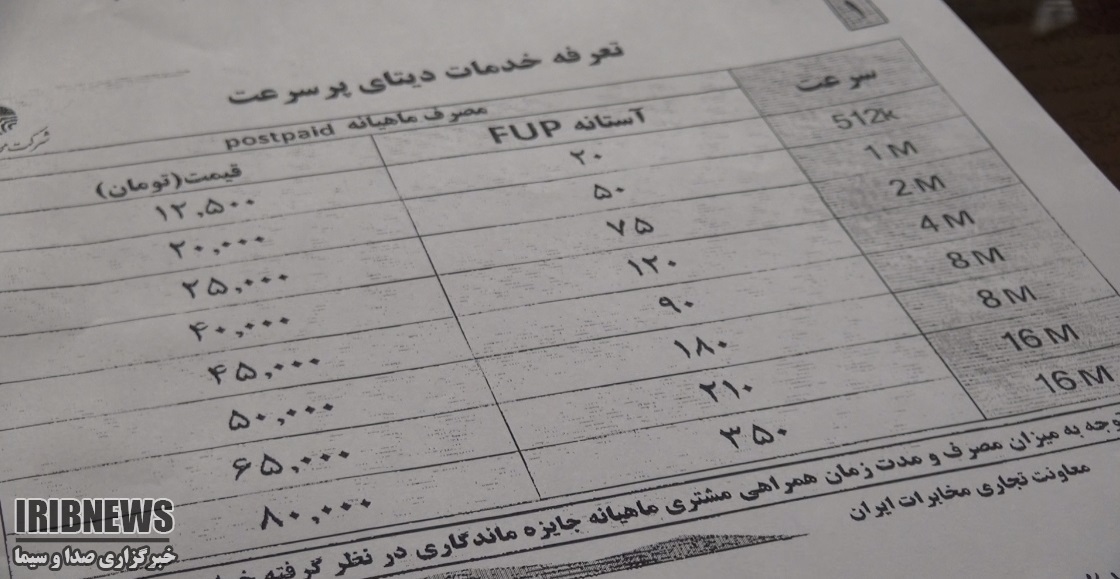 ۱
تعرفه خدمات دیتای پرسرعت
مصرف ماهیانه postpaid
سرعت آستانه FUP قیمت(تومان)
512k ۲۰ ۱۲،۵۰۰
1M ۵۰ ۲۰،۰۰۰
2M ۷۵ ۲۵،۰۰۰
4M ۱۲۰ ۴۰،۰۰۰
8M ۹۰ ۴۵،۰۰۰
8M ۱۸۰ ۵۰،۰۰۰
16M ۲۱۰ ۶۵،۰۰۰
16M ۳۵۰ ۸۰،۰۰۰
به میزان مصرف و مدت زمان همراهی مشتری ماهیانه جایزه ماندگاری در نظر گرفته
معاونت تجاری مخابرات ایران
شرکت
IRIBNEWS
خبرگزاری صدا و سیما